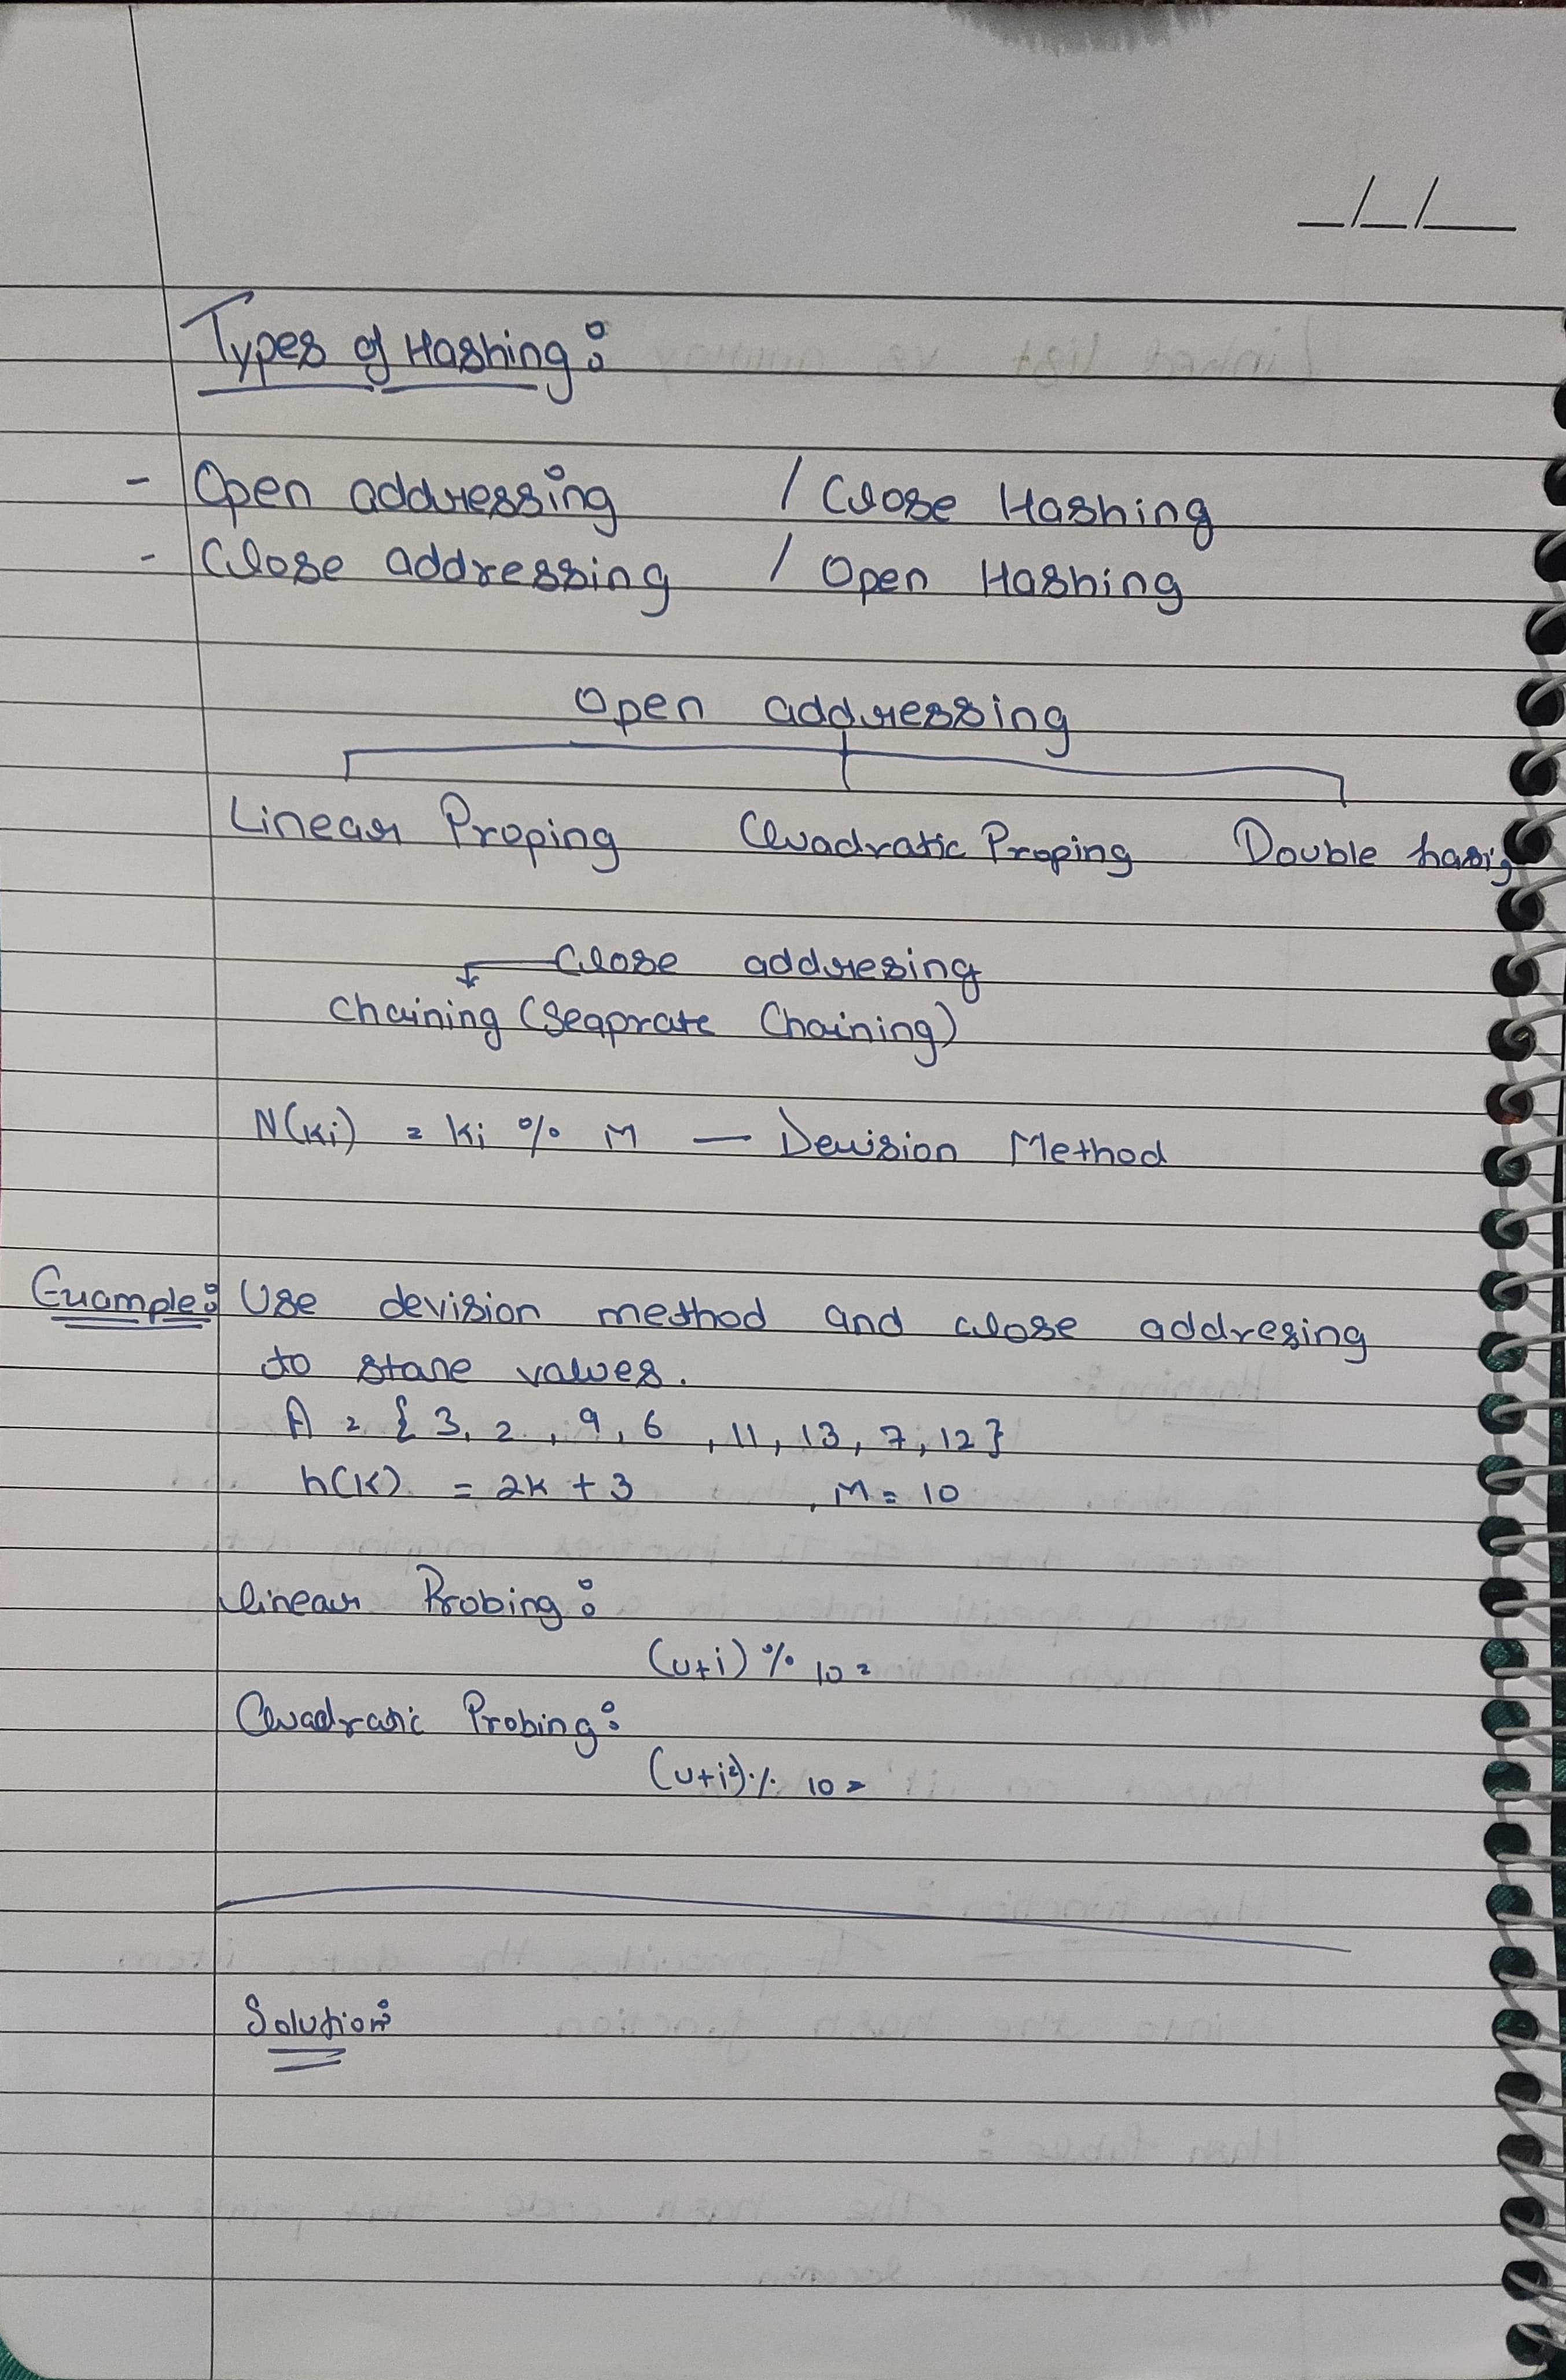 _/_/_
Types of Hashing:
- Open addressing / Close Hashing
- Close addressing / Open Hashing
Open addressing
Linear Proping Quadratic Proping Double hasig
Close addresing
Chaining (Seaprate Chaining)
N(Ki) = Ki % M — Devision Method
Example: Use devision method and close addresing
to store values.
A = { 3, 2, 9, 6, 11, 13, 7, 12 }
h(K) = 2K + 3 , M = 10
linear Probing:
(u+i) % 10 =
Quadratic Probing:
(u+i²) % 10 =
Solution: